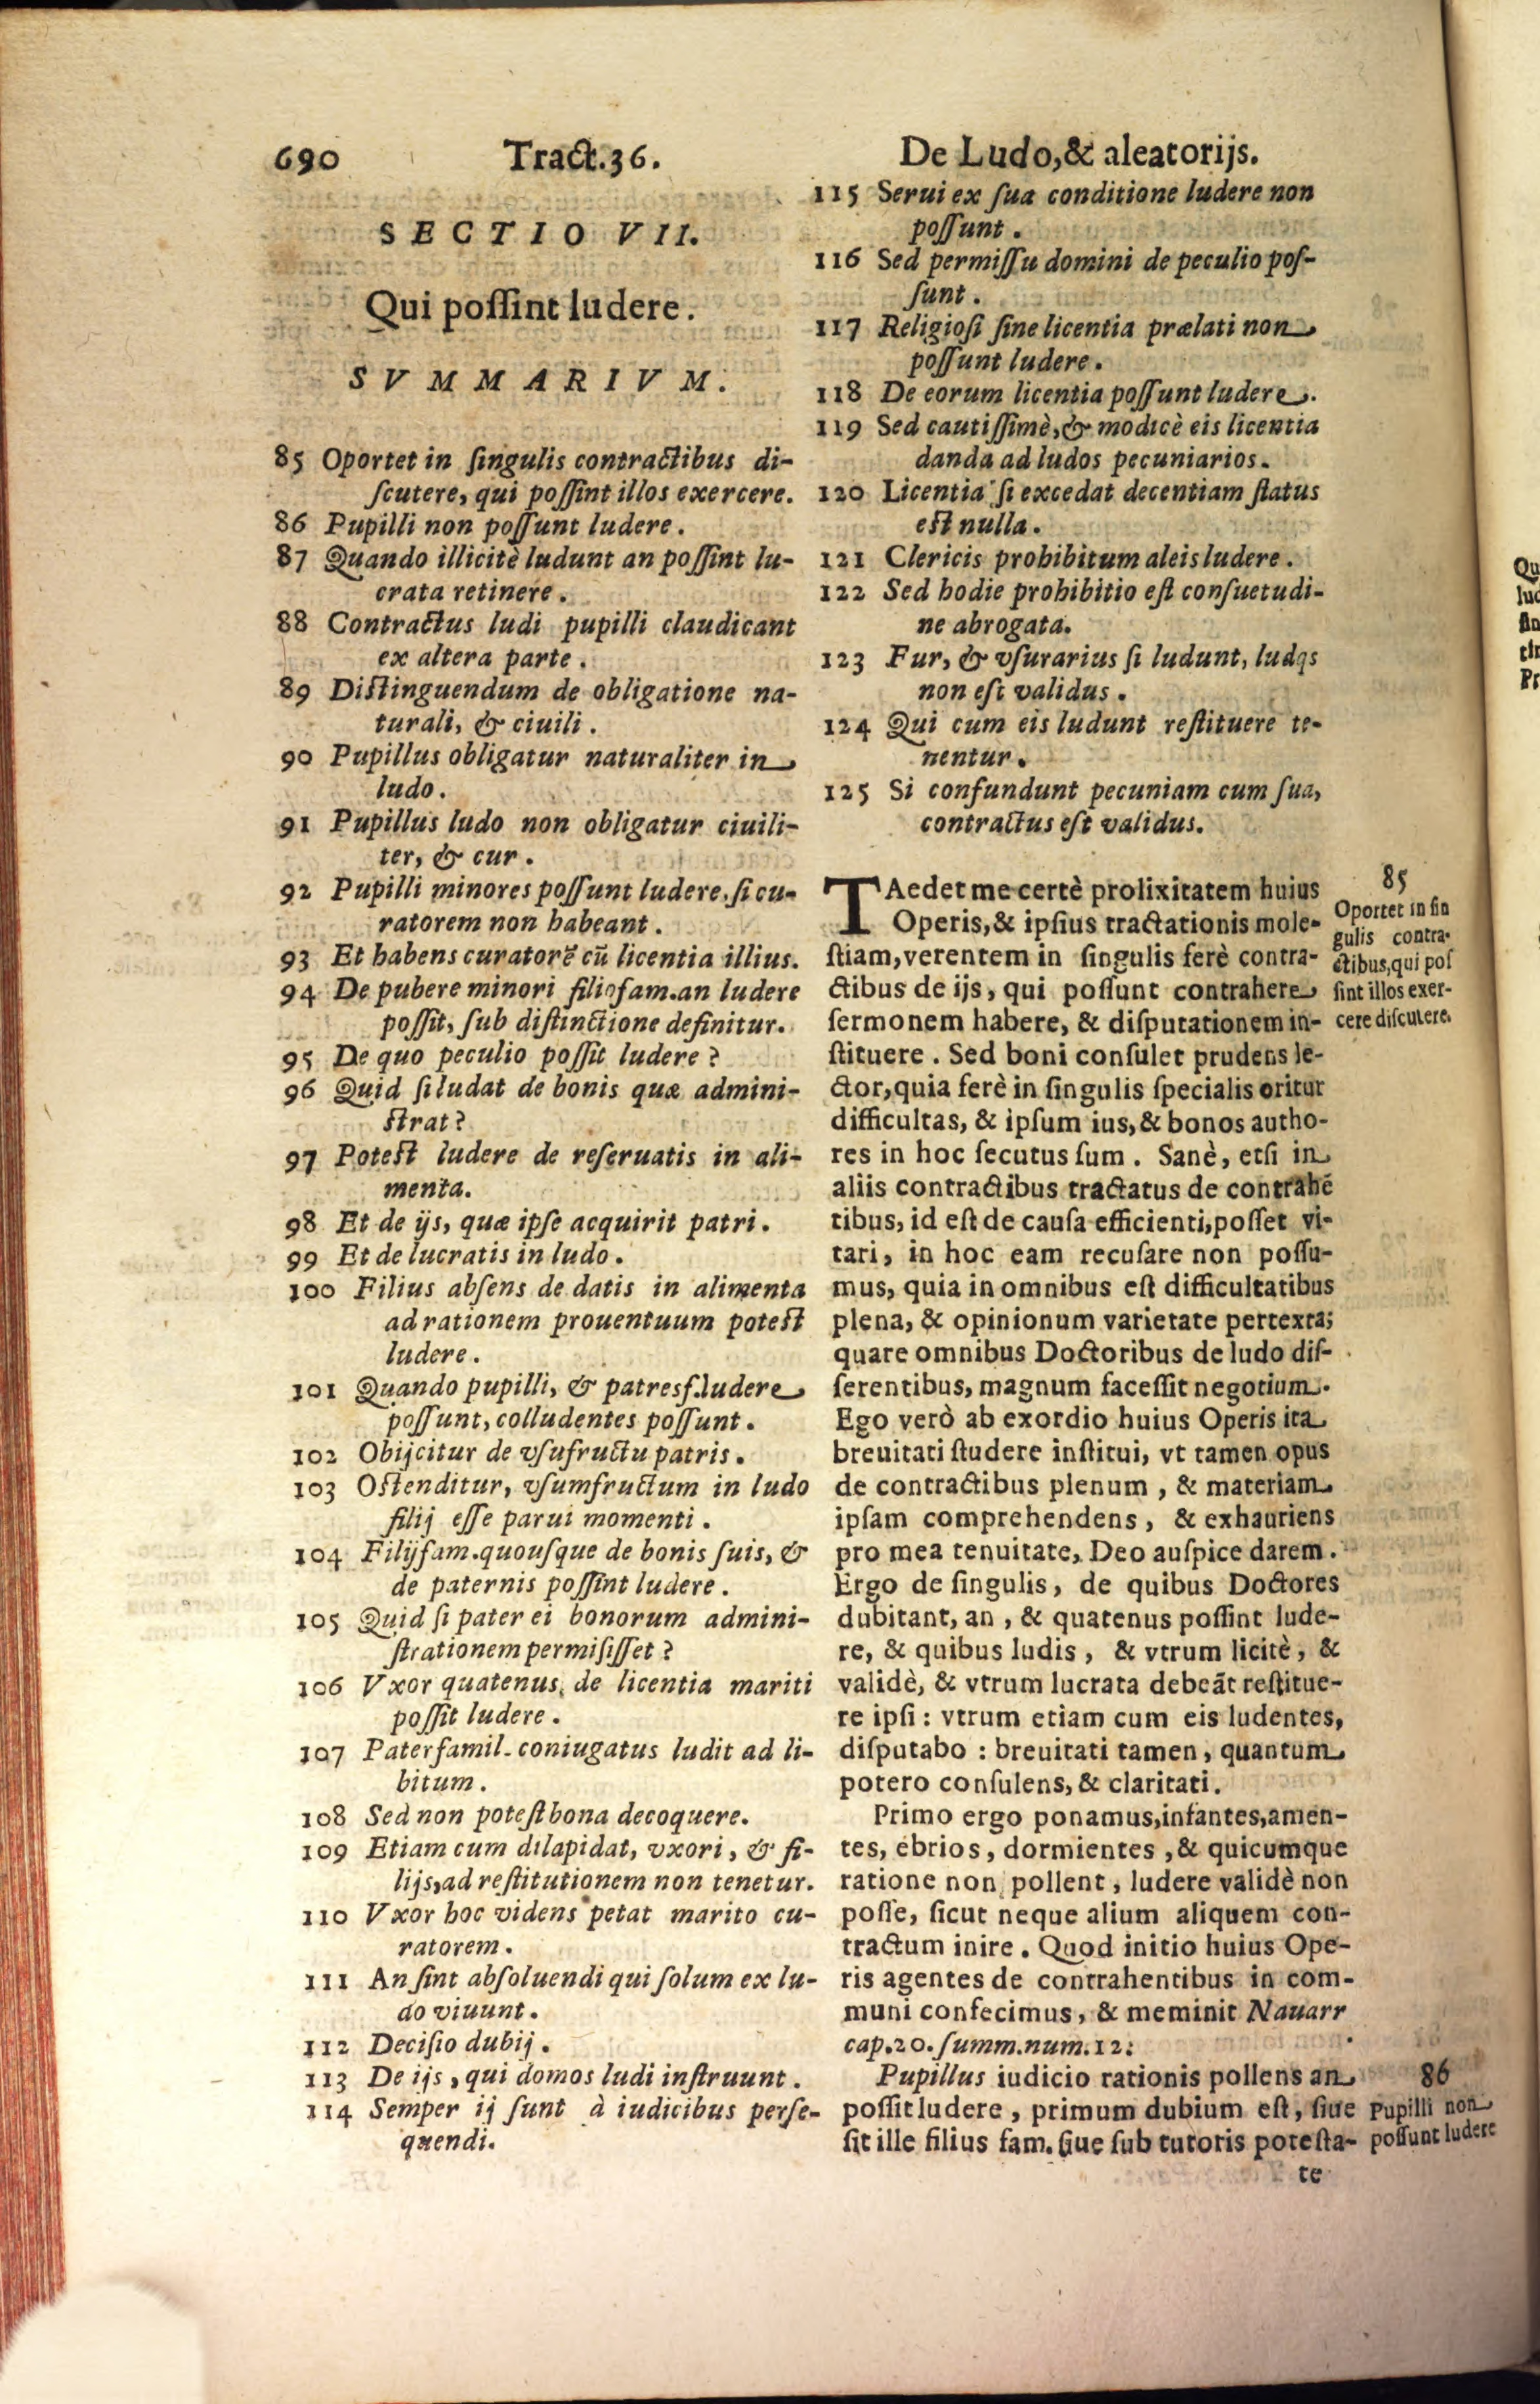 690 Tract.36. De Ludo,& aleatorijs.
SECTIO VII.
Qui poſſint ludere.
SVMMARIVM.
85 Oportet in ſingulis contractibus di-
ſcutere, qui poſſint illos exercere.
86 Pupilli non poſſunt ludere.
87 Quando illicitè ludunt an poſſint lu-
crata retinere.
88 Contractus ludi pupilli claudicant
ex altera parte.
89 Diſtinguendum de obligatione na-
turali, & ciuili.
90 Pupillus obligatur naturaliter in
ludo.
91 Pupillus ludo non obligatur ciuili-
ter, & cur.
92 Pupilli minores poſſunt ludere, ſi cu-
ratorem non habeant.
93 Et habens curatorē cū licentia illius.
94 De pubere minori filiofam. an ludere
poſſit, ſub diſtinctione definitur.
95 De quo peculio poſſit ludere?
96 Quid ſi ludat de bonis quæ admini-
ſtrat?
97 Poteſt ludere de reſeruatis in ali-
menta.
98 Et de ijs, quæ ipſe acquirit patri.
99 Et de lucratis in ludo.
100 Filius abſens de datis in alimenta
ad rationem prouentuum poteſt
ludere.
101 Quando pupilli, & patresf. ludere
poſſunt, colludentes poſſunt.
102 Obijcitur de vſufructu patris.
103 Oſtenditur, vſumfructum in ludo
filij eſſe parui momenti.
104 Filijfam. quouſque de bonis ſuis, &
de paternis poſſint ludere.
105 Quid ſi pater ei bonorum admini-
ſtrationem permiſiſſet?
106 Vxor quatenus, de licentia mariti
poſſit ludere.
107 Paterfamil. coniugatus ludit ad li-
bitum.
108 Sed non poteſt bona decoquere.
109 Etiam cum dilapidat, vxori, & fi-
lijs, ad reſtitutionem non tenetur.
110 Vxor hoc videns petat marito cu-
ratorem.
111 An ſint abſoluendi qui ſolum ex lu-
do viuunt.
112 Deciſio dubij.
113 De ijs, qui domos ludi inſtruunt.
114 Semper ij ſunt à iudicibus perſe-
quendi.
115 Serui ex ſua conditione ludere non
poſſunt.
116 Sed permiſſu domini de peculio poſ-
ſunt.
117 Religioſi ſine licentia prælati non
poſſunt ludere.
118 De eorum licentia poſſunt ludere.
119 Sed cautiſſimè, & modicè eis licentia
danda ad ludos pecuniarios.
120 Licentia ſi excedat decentiam ſtatus
eſt nulla.
121 Clericis prohibitum aleis ludere.
122 Sed hodie prohibitio eſt conſuetudi-
ne abrogata.
123 Fur, & vſurarius ſi ludunt, ludqs
non eſt validus.
124 Qui cum eis ludunt reſtituere te-
nentur.
125 Si confundunt pecuniam cum ſua,
contractus eſt validus.
TAedet me certè prolixitatem huius
Operis,& ipſius tractationis mole-
ſtiam, verentem in ſingulis ferè contra-
ctibus de ijs, qui poſſunt contrahere
ſermonem habere, & diſputationem in-
ſtituere. Sed boni conſulet prudens le-
ctor, quia ferè in ſingulis ſpecialis oritur
difficultas, & ipſum ius, & bonos autho-
res in hoc ſecutus ſum. Sanè, etſi in
aliis contractibus tractatus de contrahē
tibus, id eſt de cauſa efficienti, poſſet vi-
tari, in hoc eam recuſare non poſſu-
mus, quia in omnibus eſt difficultatibus
plena, & opinionum varietate pertexta;
quare omnibus Doctoribus de ludo diſ-
ſerentibus, magnum faceſſit negotium.
Ego verò ab exordio huius Operis ita
breuitati ſtudere inſtitui, vt tamen opus
de contractibus plenum, & materiam
ipſam comprehendens, & exhauriens
pro mea tenuitate, Deo auſpice darem.
Ergo de ſingulis, de quibus Doctores
dubitant, an, & quatenus poſſint lude-
re, & quibus ludis, & vtrum licitè, &
validè, & vtrum lucrata debeāt reſtitue-
re ipſi: vtrum etiam cum eis ludentes,
diſputabo: breuitati tamen, quantum
potero conſulens, & claritati.
Primo ergo ponamus, infantes, amen-
tes, ebrios, dormientes, & quicumque
ratione non pollent, ludere validè non
poſſe, ſicut neque alium aliquem con-
tractum inire. Quod initio huius Ope-
ris agentes de contrahentibus in com-
muni confecimus, & meminit Nauarr
cap.20. ſumm.num.12:
Pupillus iudicio rationis pollens an
poſſit ludere, primum dubium eſt, ſiue
ſit ille filius fam. ſiue ſub tutoris poteſta-
te
85
Oportet in ſin
gulis contra-
ctibus, qui poſ
ſint illos exer-
cere diſcutere.
86
Pupilli non
poſſunt ludere